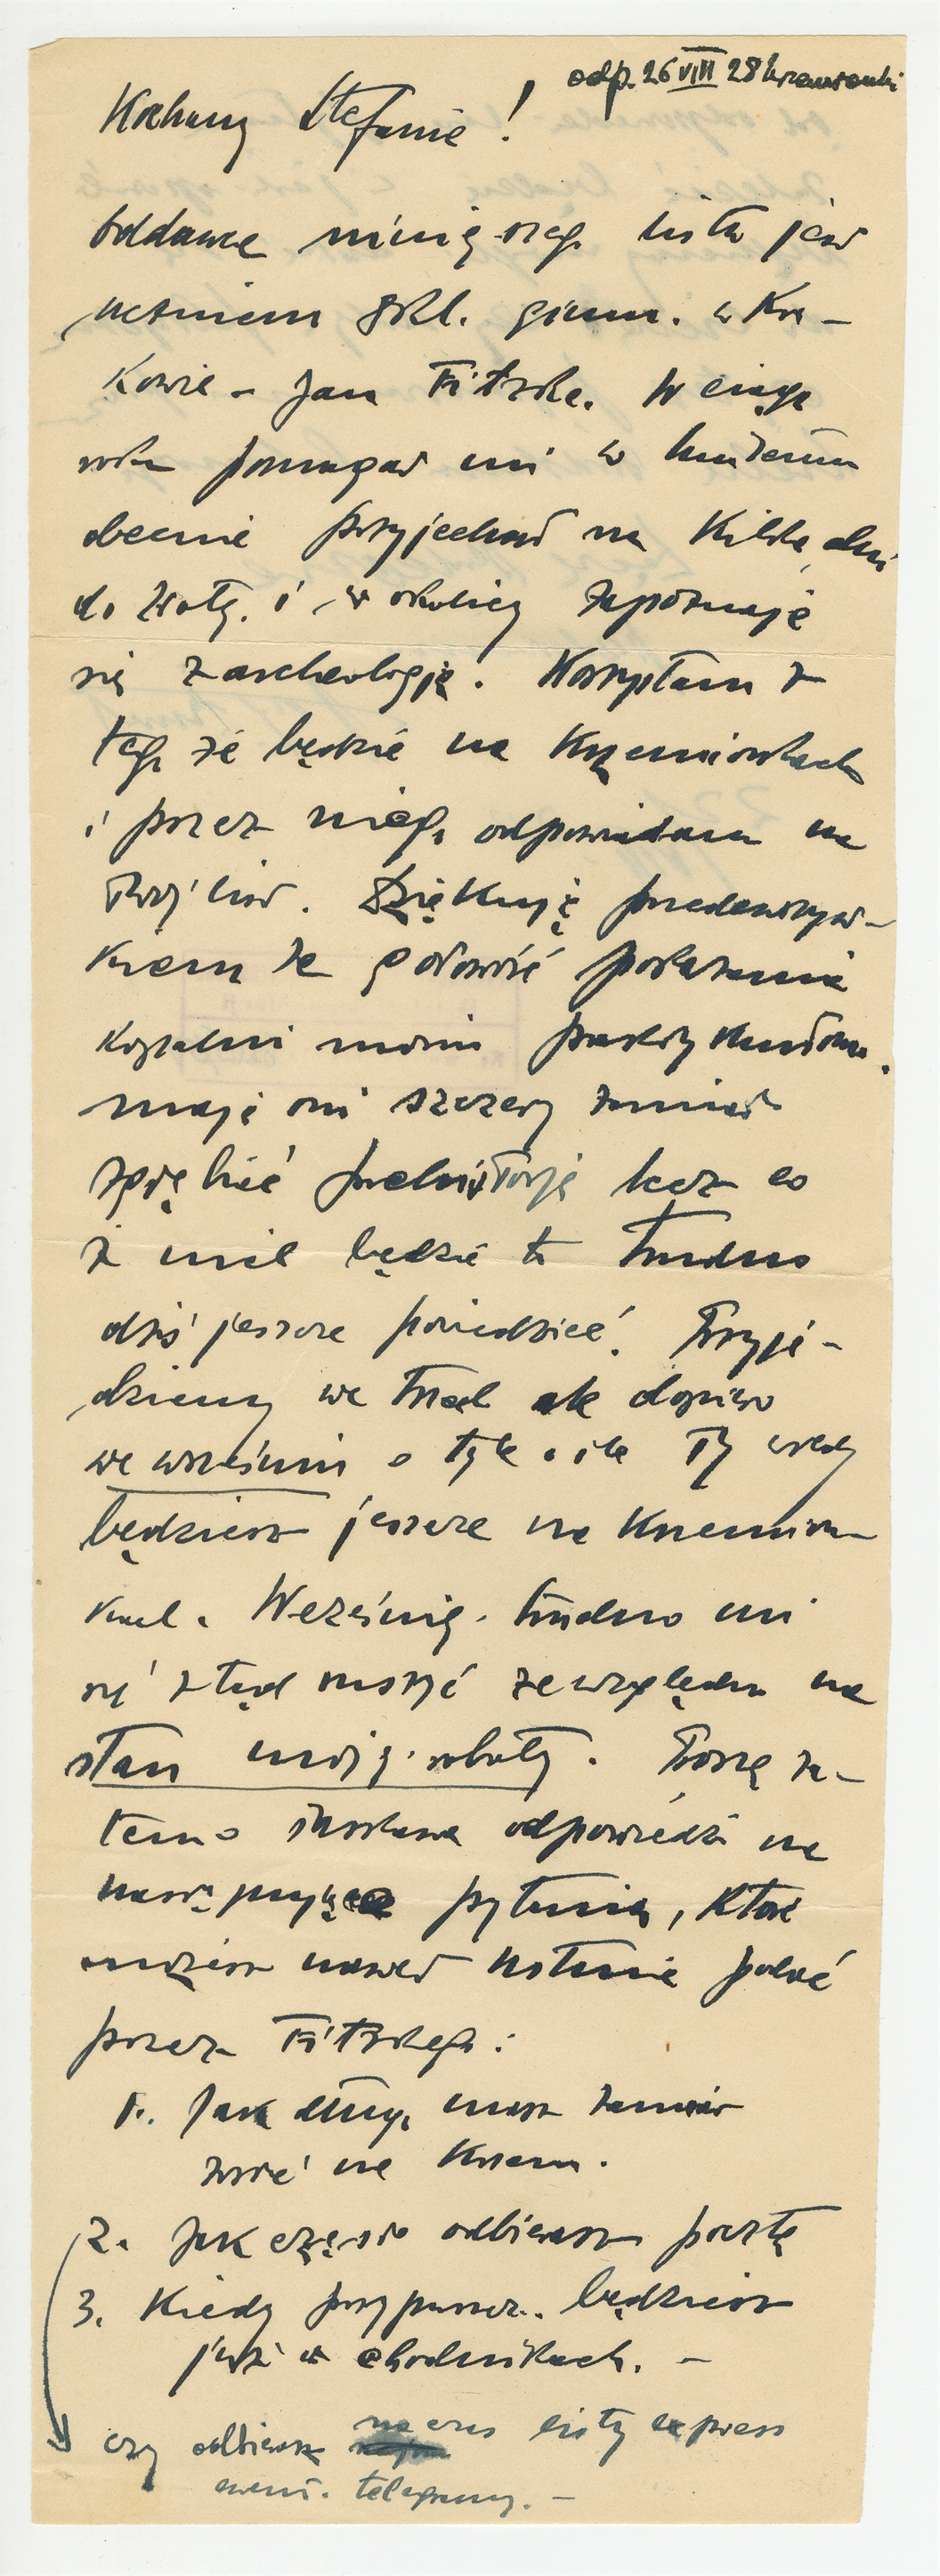 odp. 26 VIII 28 Krzemionki
Kochany Stefanie!
Oddawcą niniejszego listu jest
uczniem 8 kl. gimn. w Kra-
kowie - Jan Fitzke. W ciągu
roku pomagał mi w Muzeum
obecnie przyjechał na kilka dni
do Złotej i w okolicy zapoznaje
się z archeologją. Korzystam z
tego że będzie na Krzemionkach
i przez niego odpowiadam na
Twój list. Dziękuję przedewszyst-
kiem za gotowość pokazania
kopalni moim
mają oni szczery zamiar
zgłębić prehistorję lecz co
z nich będzie to trudno
dziś jeszcze powiedzieć. Przyje-
dziemy we trzech ale dopiero
we wrześniu o tyle o ile Ty wtedy
będziesz jeszcze na Krzemion-
kach. Wcześniej trudno mi
się ztąd ruszyć ze względu na
stan mojej roboty. Proszę za-
tem o łaskawe odpowiedzi na
następujące pytania, które
możesz nawet ustnie podać
przez Fitzkego:
1. Jak długo masz zamiar
zostać na Krzem.
2. Jak często odbierasz pocztę
3. Kiedy przypuszcz. będziesz
już w chodnikach. -
czy odbierasz na czas listy express
ewent. telegramy. -